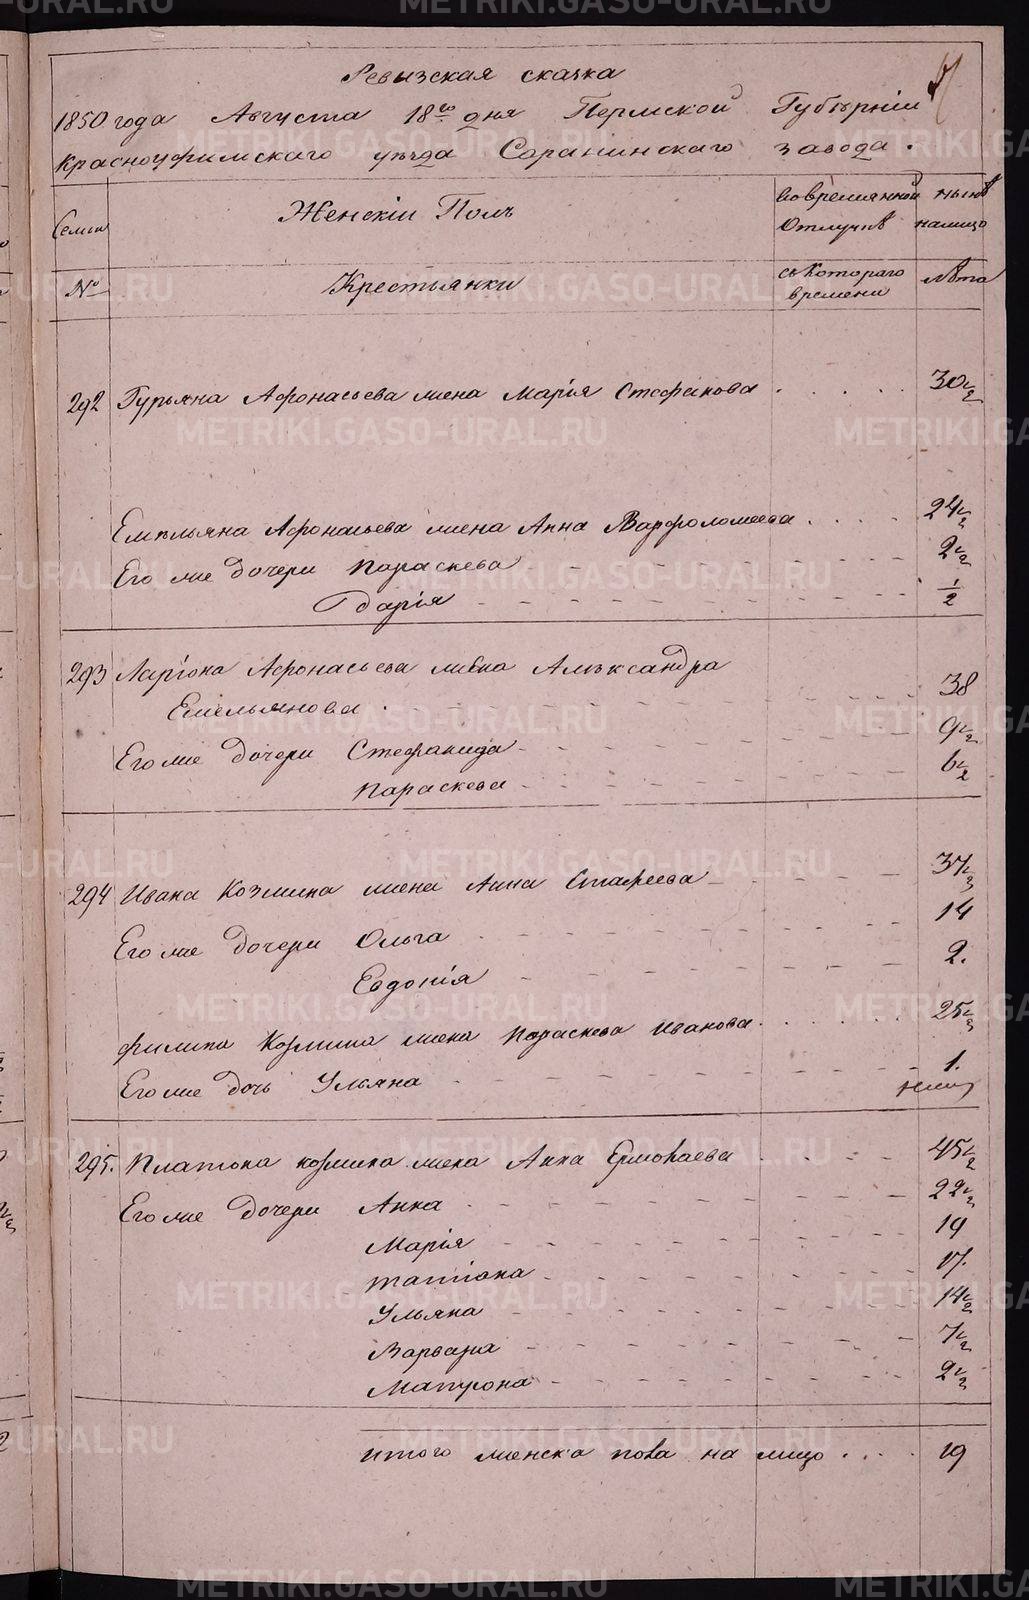 Ревызская сказка
1850 года Августа 18го дня Пермской Губернiи
Красноуфимскаго уезда Соранинскаго завода.
Семьи Женскiи Полъ вовремянной отлучкѣ нынѣ налицо
№ Крестьянки съ Котораго времени лѣта
292 Гурьяна Афонасьева жена Марiя Стефанова 30 1/2
Емельяна Афонасьева жена Анна Варфоломеева 24 1/2
Его же дочери Параскева 2 1/2
Дарiя 1/2
293 Ларiона Афонасьева жена Алѣксандра
Емельянова 38
Его же дочери Стефанида 9 1/2
Параскева 6 1/2
294 Ивана Козмина жена Анна Стафеева 37 1/2
Его же дочери Ольга 14
Евдокiя 2.
Филипа Козмина жена Параскева Иванова 25 1/2
Его же дочь Ульяна 1.
295. Платона Козмина жена Анна Ермолаева 45 1/2
Его же дочери Анна 22 1/2
Марiя 19
Татiона 17.
Ульяна 14 1/2
Варвара 7 1/2
Матрона 2 1/2
итого женска пола на лицо 19
METRIKI.GASO-URAL.RU